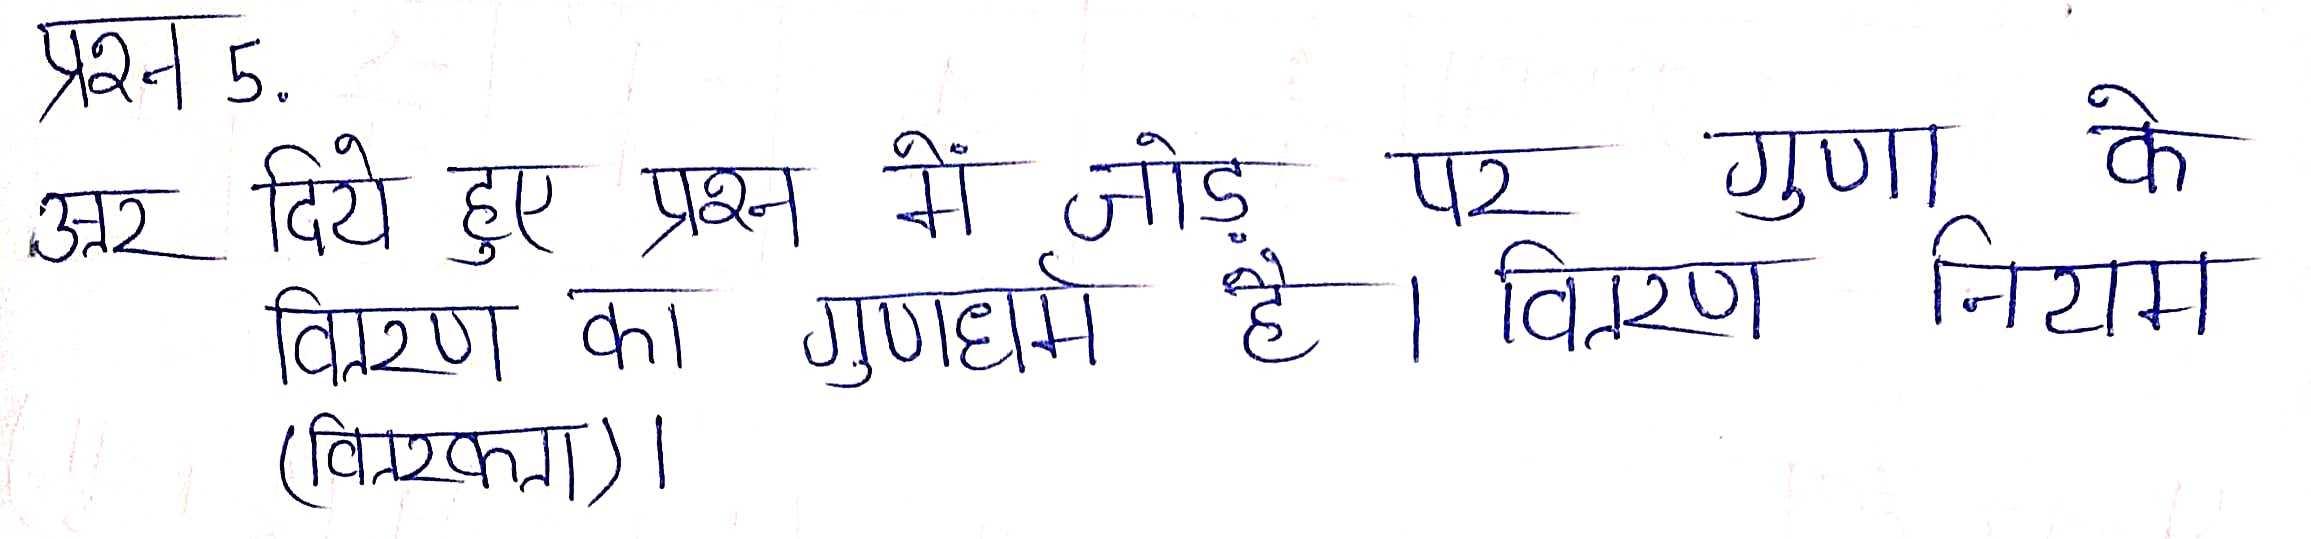 प्रश्न 5.
उत्तर दिये हुए प्रश्न में जोड़ पर गुणा के
वितरण का गुणधर्म है। वितरण नियम
(वितरकता)।